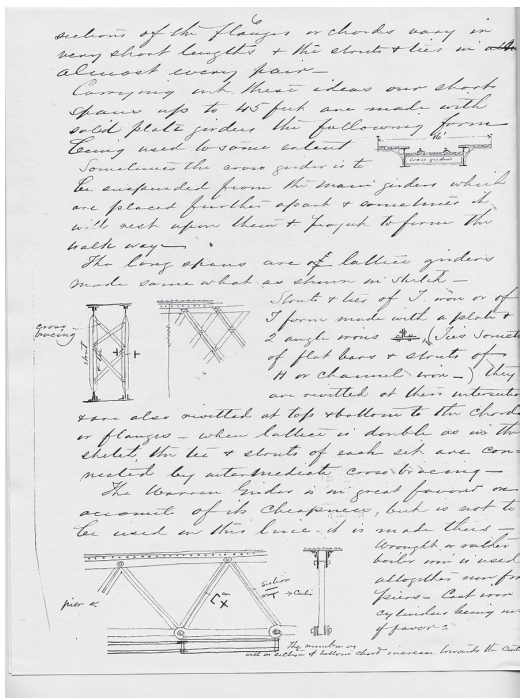 6
sections of the flanges or chords vary in
very short lengths & the struts & ties in
almost every pair –
Carrying out these ideas our short
spans up to 45 feet are made with
solid plate girders the following form
being used to some extent
16'
cross girders
Sometimes the cross girder is to
be suspended from the main girders which
are placed further apart & sometimes it
will rest upon them & project to form the
walk way –
The long spans are of lattice girders
made some what as shown in sketch –
cross
bracing –
strut
Struts & ties of T iron or of
T form made with a plate &
2 angle irons (Ties somet
of flat bars & struts of
H or channel iron –) They
are rivetted at their intersecti
& are also rivetted at top & bottom to the chords
or flanges – when lattice is double as in the
sketch, the tie & struts of each set are con-
nected by intermediate cross bracing –
The Warren Girder is in great favour on
account of its cheapness, but is not to
be used on this line. it is made thus –
Wrought or rather
boiler iron is used
altogether now for
piers – Cast iron
cylinders being
of favor –
pier
Section
The number or
section of bottom chord increase towards the